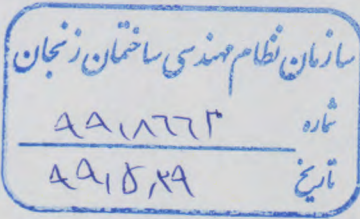 سازمان نظام مهندسی ساختمان زنجان
شماره ۹۹/۸۶۶۳
تاریخ ۹۹/۵/۲۹